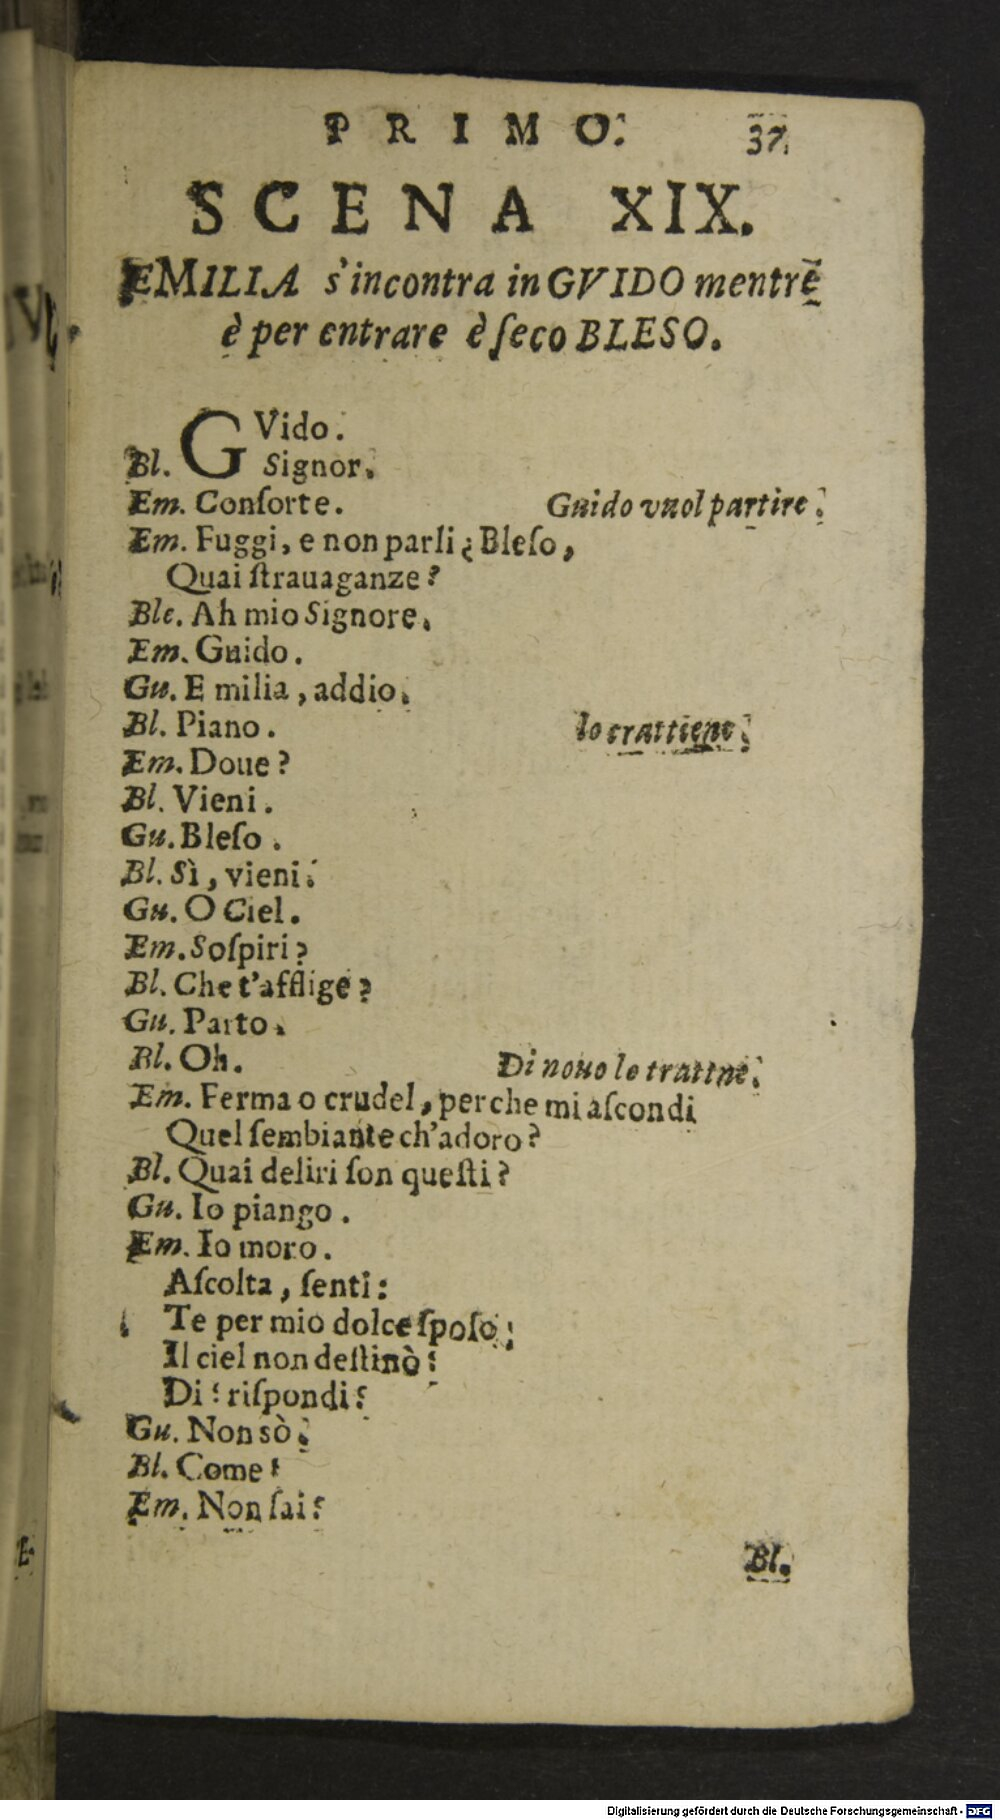 PRIMO. 37.
SCENA XIX.
EMILIA s'incontra in GVIDO mentre
è per entrare è ſeco BLESO.
GVido.
Bl. Signor.
Em. Conſorte. Guido vuol partire.
Em. Fuggi, e non parli? Bleſo,
Quai ſtrauaganze?
Ble. Ah mio Signore.
Em. Guido.
Gu. Emilia, addio.
Bl. Piano. lo trattiene.
Em. Doue?
Bl. Vieni.
Gu. Bleſo.
Bl. Sì, vieni.
Gu. O Ciel.
Em. Soſpiri?
Bl. Che t'afflige?
Gu. Parto.
Bl. Oh. Di nouo lo trattne.
Em. Ferma o crudel, perche mi aſcondi
Quel ſembiante ch'adoro?
Bl. Quai deliri ſon queſti?
Gu. Io piango.
Em. Io moro.
Aſcolta, ſenti:
Te per mio dolce ſpoſo;
Il ciel non deſtinò?
Di? riſpondi?
Gu. Non sò.
Bl. Come?
Em. Non ſai?
Bl.
Digitalisierung gefördert durch die Deutsche Forschungsgemeinschaft - DFG